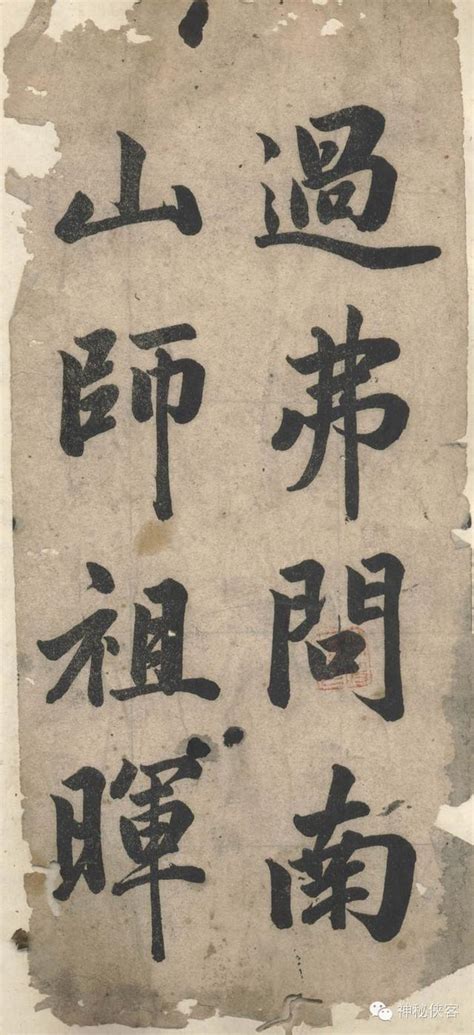 過弗問南
山師祖暉
神秘侠客